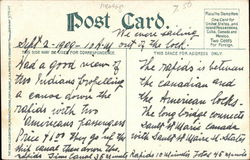 7.50
Post Card.
We more sailing
out of the Lock
Sept 2-1908-10 A.M
THIS SIDE FOR CORRESPONDENCE.
THIS SPACE FOR ADDRESS ONLY.
Place the Stamp Here.
One Cent for
United States
and Island Possessions,
Cuba, Canada and
Mexico.
Two Cents
for Foreign.
Had a good view of
two Indians propelling
a canoe down the
rapids with two
Americans passengers
Price $1.00 They go up the
ship canal then down the
rapids Time Canal 35 Minuts Rapids 10 Minuts Total 45
The rapids is between
the canadian and
the American locks.
The long bridge connects
Sault St Marie canada
with Sault St Marie